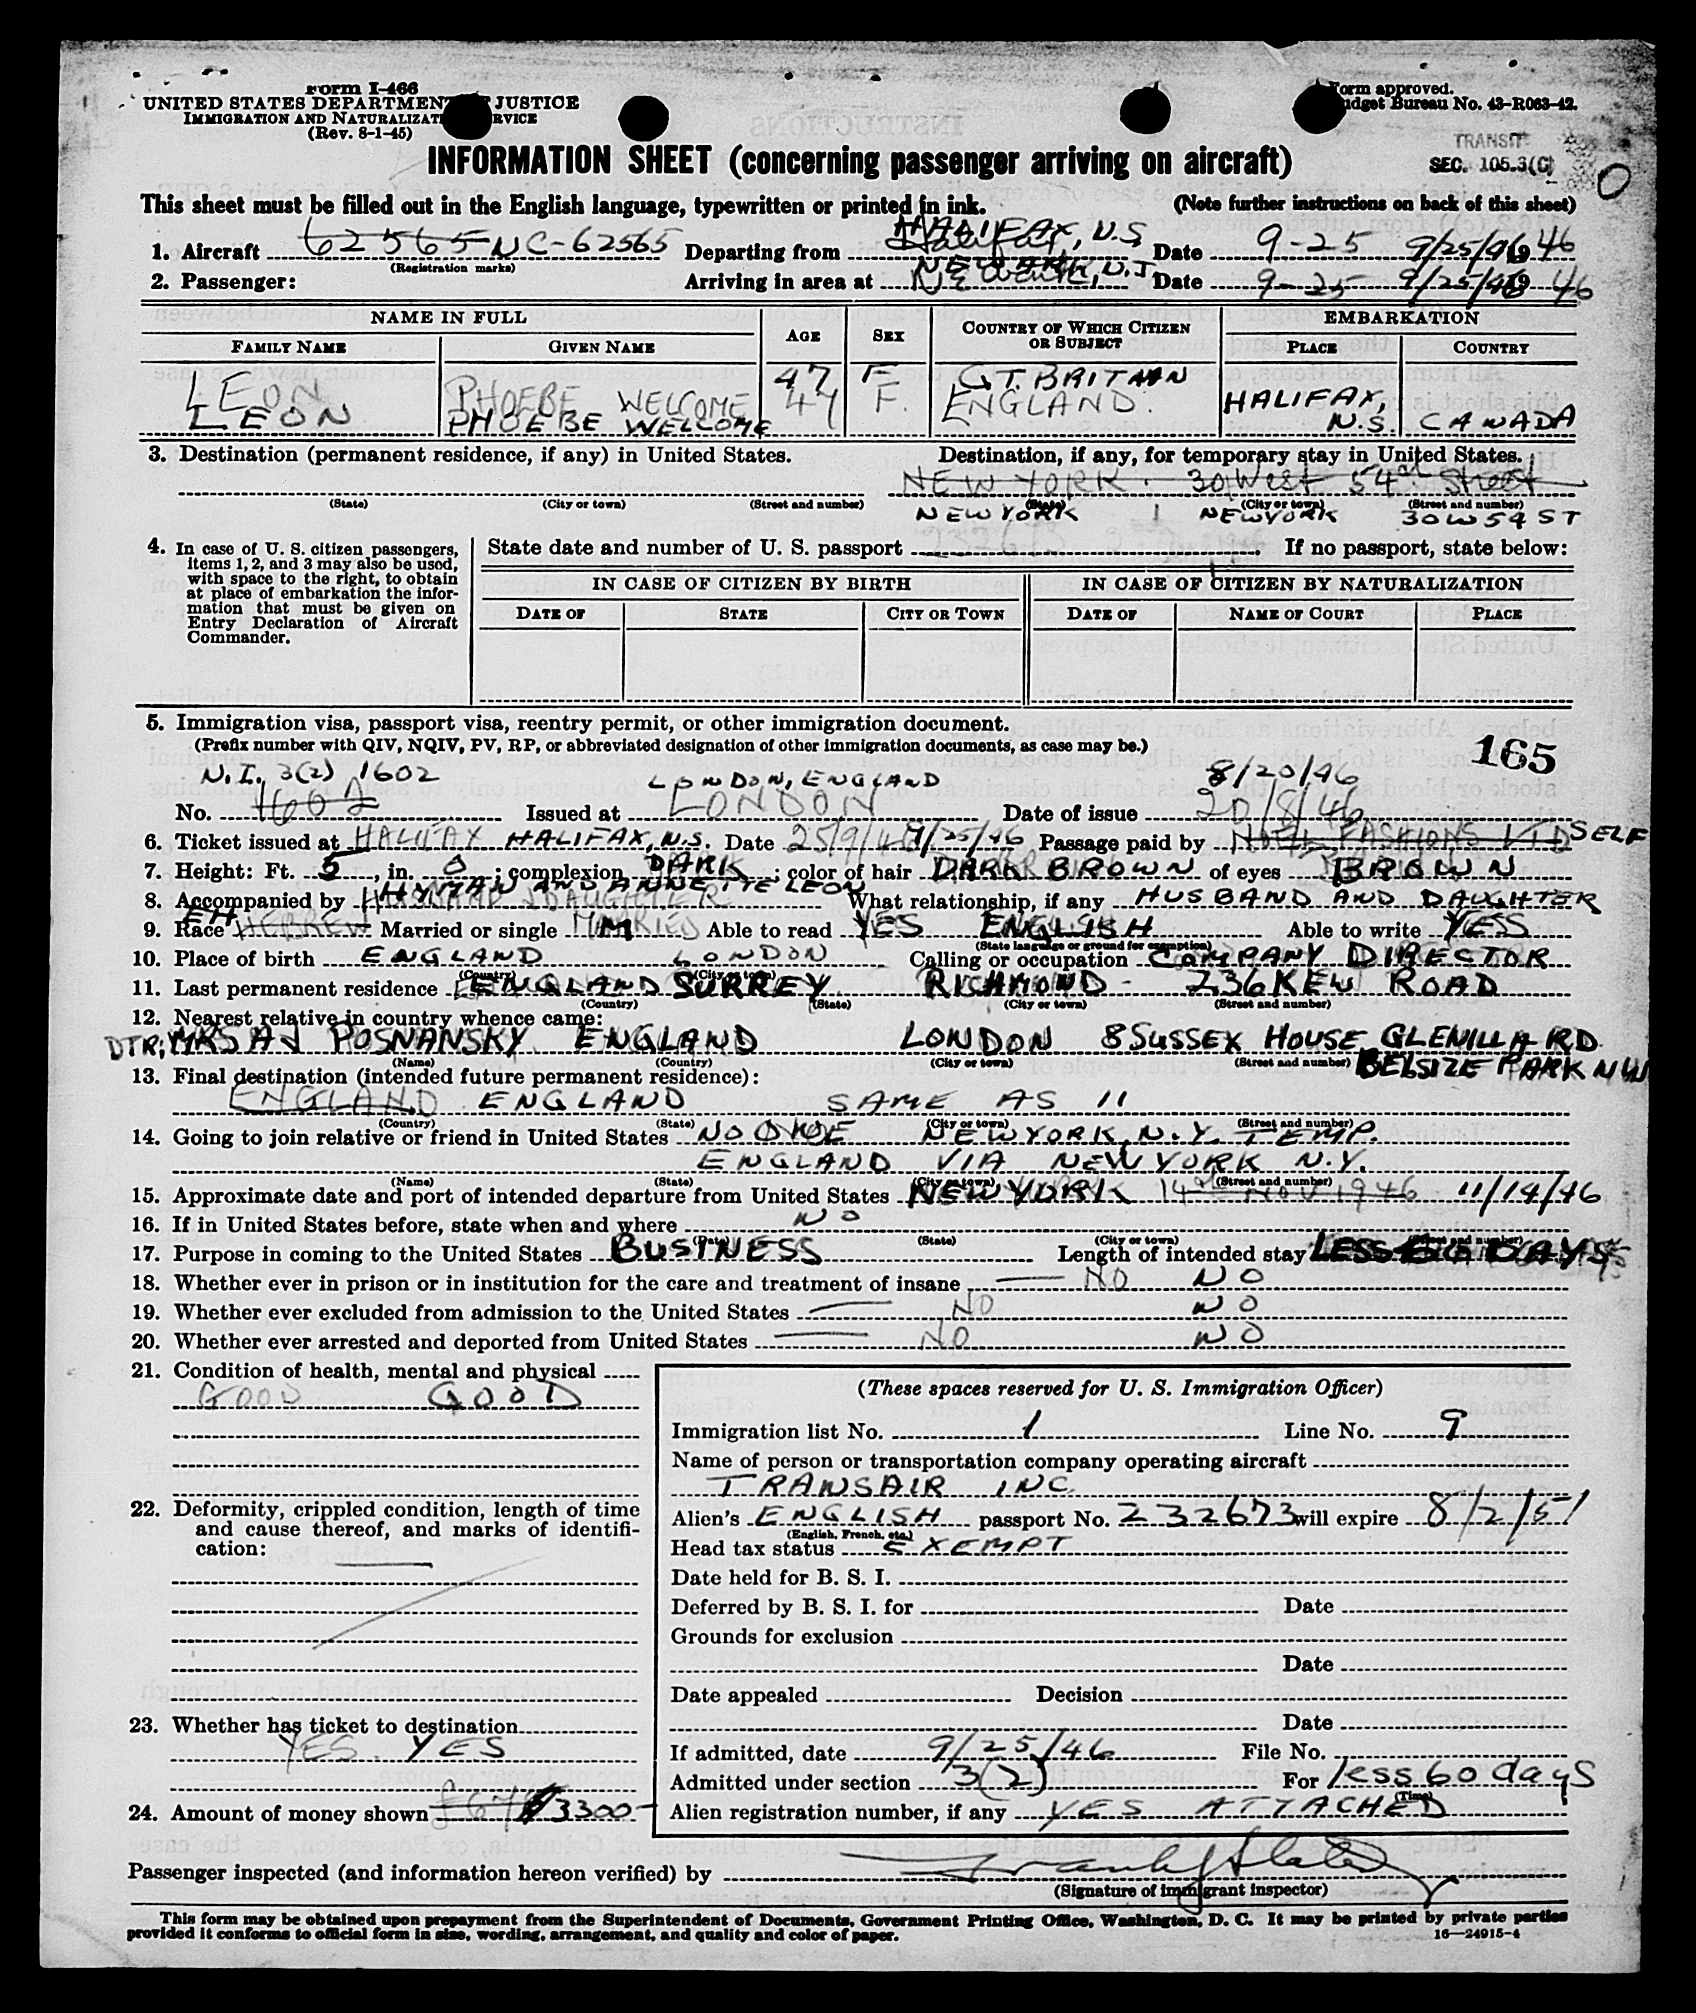 Form I-466
UNITED STATES DEPARTMENT JUSTICE
IMMIGRATION AND NATURALIZAT RVICE
(Rev. 8-1-45)
Form approved.
Budget Bureau No. 43-R063-42.
TRANSIT
SEC. 105.3(C)
INFORMATION SHEET (concerning passenger arriving on aircraft)
This sheet must be filled out in the English language, typewritten or printed in ink. (Note further instructions on back of this sheet)
1. Aircraft 62565 NC-62565 Departing from HALIFAX, Date 9-25 9/25/46 1946
(Registration marks)
2. Passenger: Arriving in area at NEWARK, N.J. Date 9-25 9/25/46 1946
NAME IN FULL AGE SEX COUNTRY OF WHICH CITIZEN OR SUBJECT EMBARKATION
FAMILY NAME GIVEN NAME PLACE COUNTRY
LEON PHOEBE WELCOME 47 F GT. BRITAIN
LEON PHOEBE WELCOME 47 F. ENGLAND. HALIFAX, N.S. CANADA
3. Destination (permanent residence, if any) in United States. Destination, if any, for temporary stay in United States.
NEW YORK. 30 West 54th Street
(State) (City or town) (Street and number) (State) (City or town) (Street and number)
NEW YORK NEW YORK 30 W 54 ST
4. In case of U. S. citizen passengers, items 1, 2, and 3 may also be used, with space to the right, to obtain at place of embarkation the information that must be given on Entry Declaration of Aircraft Commander.
State date and number of U. S. passport If no passport, state below:
IN CASE OF CITIZEN BY BIRTH IN CASE OF CITIZEN BY NATURALIZATION
DATE OF STATE CITY OR TOWN DATE OF NAME OF COURT PLACE
5. Immigration visa, passport visa, reentry permit, or other immigration document.
(Prefix number with QIV, NQIV, PV, RP, or abbreviated designation of other immigration documents, as case may be.)
165
N.I. 3(2) 1602 LONDON, ENGLAND 8/20/46
No. 1602 Issued at LONDON Date of issue 20/8/46
6. Ticket issued at HALIFAX HALIFAX, N.S. Date 25/9/46 9/25/46 Passage paid by FASHIONS LTD SELF
7. Height: Ft. 5, in. 0; complexion DARK; color of hair DARK BROWN of eyes BROWN
8. Accompanied by HYMAN AND ANNETTE LEON HUSBAND & DAUGHTER What relationship, if any HUSBAND AND DAUGHTER
9. Race EH HEBREW Married or single M MARRIED Able to read YES ENGLISH Able to write YES
(State language or ground for exemption)
10. Place of birth ENGLAND LONDON Calling or occupation COMPANY DIRECTOR
(Country) (City or town)
11. Last permanent residence ENGLAND SURREY RICHMOND - 236 KEW ROAD
(Country) (State) (City or town) (Street and number)
12. Nearest relative in country whence came:
DTR; MRS A J POSNANSKY ENGLAND LONDON 8 SUSSEX HOUSE GLENILLA RD
(Name) (Country) (City or town) (Street and number) BELSIZE PARK NW
13. Final destination (intended future permanent residence):
ENGLAND ENGLAND SAME AS 11
(Country) (State) (City or town) (Street and number)
14. Going to join relative or friend in United States NO ONE NEW YORK, N.Y. TEMP.
ENGLAND VIA NEW YORK N.Y.
(Name) (State) (City or town) (Street and number)
15. Approximate date and port of intended departure from United States NEW YORK 14th NOV 1946 11/14/46
16. If in United States before, state when and where NO
(Date) (State) (City or town) (Street and number)
17. Purpose in coming to the United States BUSINESS Length of intended stay LESS 60 DAYS
18. Whether ever in prison or in institution for the care and treatment of insane NO NO
19. Whether ever excluded from admission to the United States NO NO
20. Whether ever arrested and deported from United States NO NO
21. Condition of health, mental and physical
GOOD GOOD
22. Deformity, crippled condition, length of time and cause thereof, and marks of identification:
23. Whether has ticket to destination
YES. YES
24. Amount of money shown $3300-
(These spaces reserved for U. S. Immigration Officer)
Immigration list No. 1 Line No. 9
Name of person or transportation company operating aircraft
TRANSAIR INC.
Alien's ENGLISH passport No. 232673 will expire 8/2/51
(English, French, etc.)
Head tax status EXEMPT
Date held for B. S. I.
Deferred by B. S. I. for Date
Grounds for exclusion
Date
Date appealed Decision
Date
If admitted, date 9/25/46 File No.
Admitted under section 3(2) For less 60 days
(Time)
Alien registration number, if any YES ATTACHED
Passenger inspected (and information hereon verified) by
(Signature of immigrant inspector)
This form may be obtained upon prepayment from the Superintendent of Documents, Government Printing Office, Washington, D. C. It may be printed by private parties
provided it conforms to official form in size, wording, arrangement, and quality and color of paper.
16—24915-4